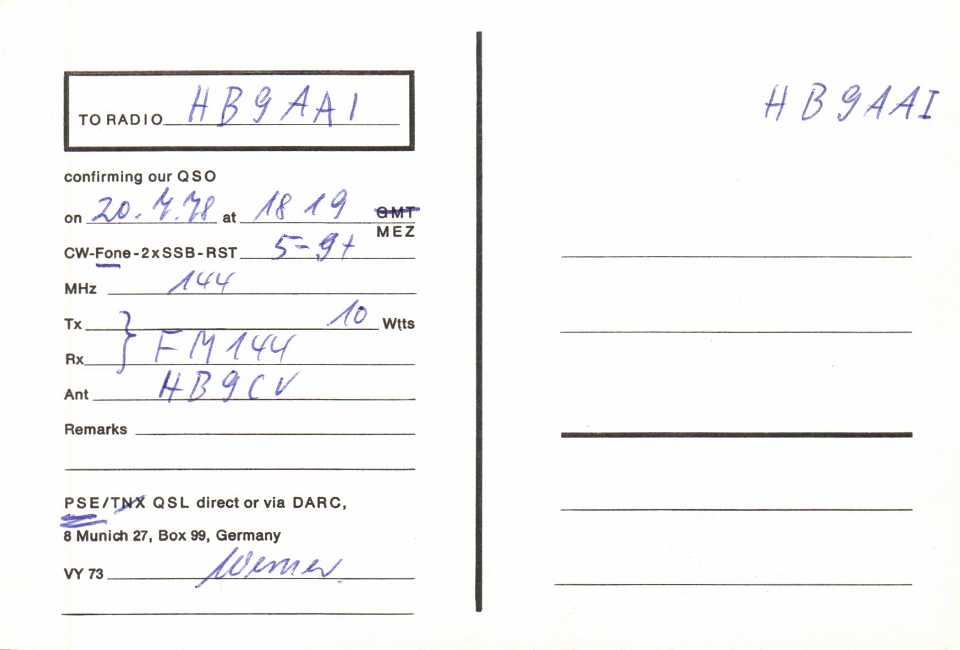 TO RADIO HB9AAI
confirming our QSO
on 20.7.78 at 1819 GMT
MEZ
CW-Fone-2xSSB-RST 5-9+
MHz 144
Tx 10 Wtts
Rx FM144
Ant HB9CV
Remarks
PSE/TNX QSL direct or via DARC,
8 Munich 27, Box 99, Germany
VY 73 Werner
HB9AAI